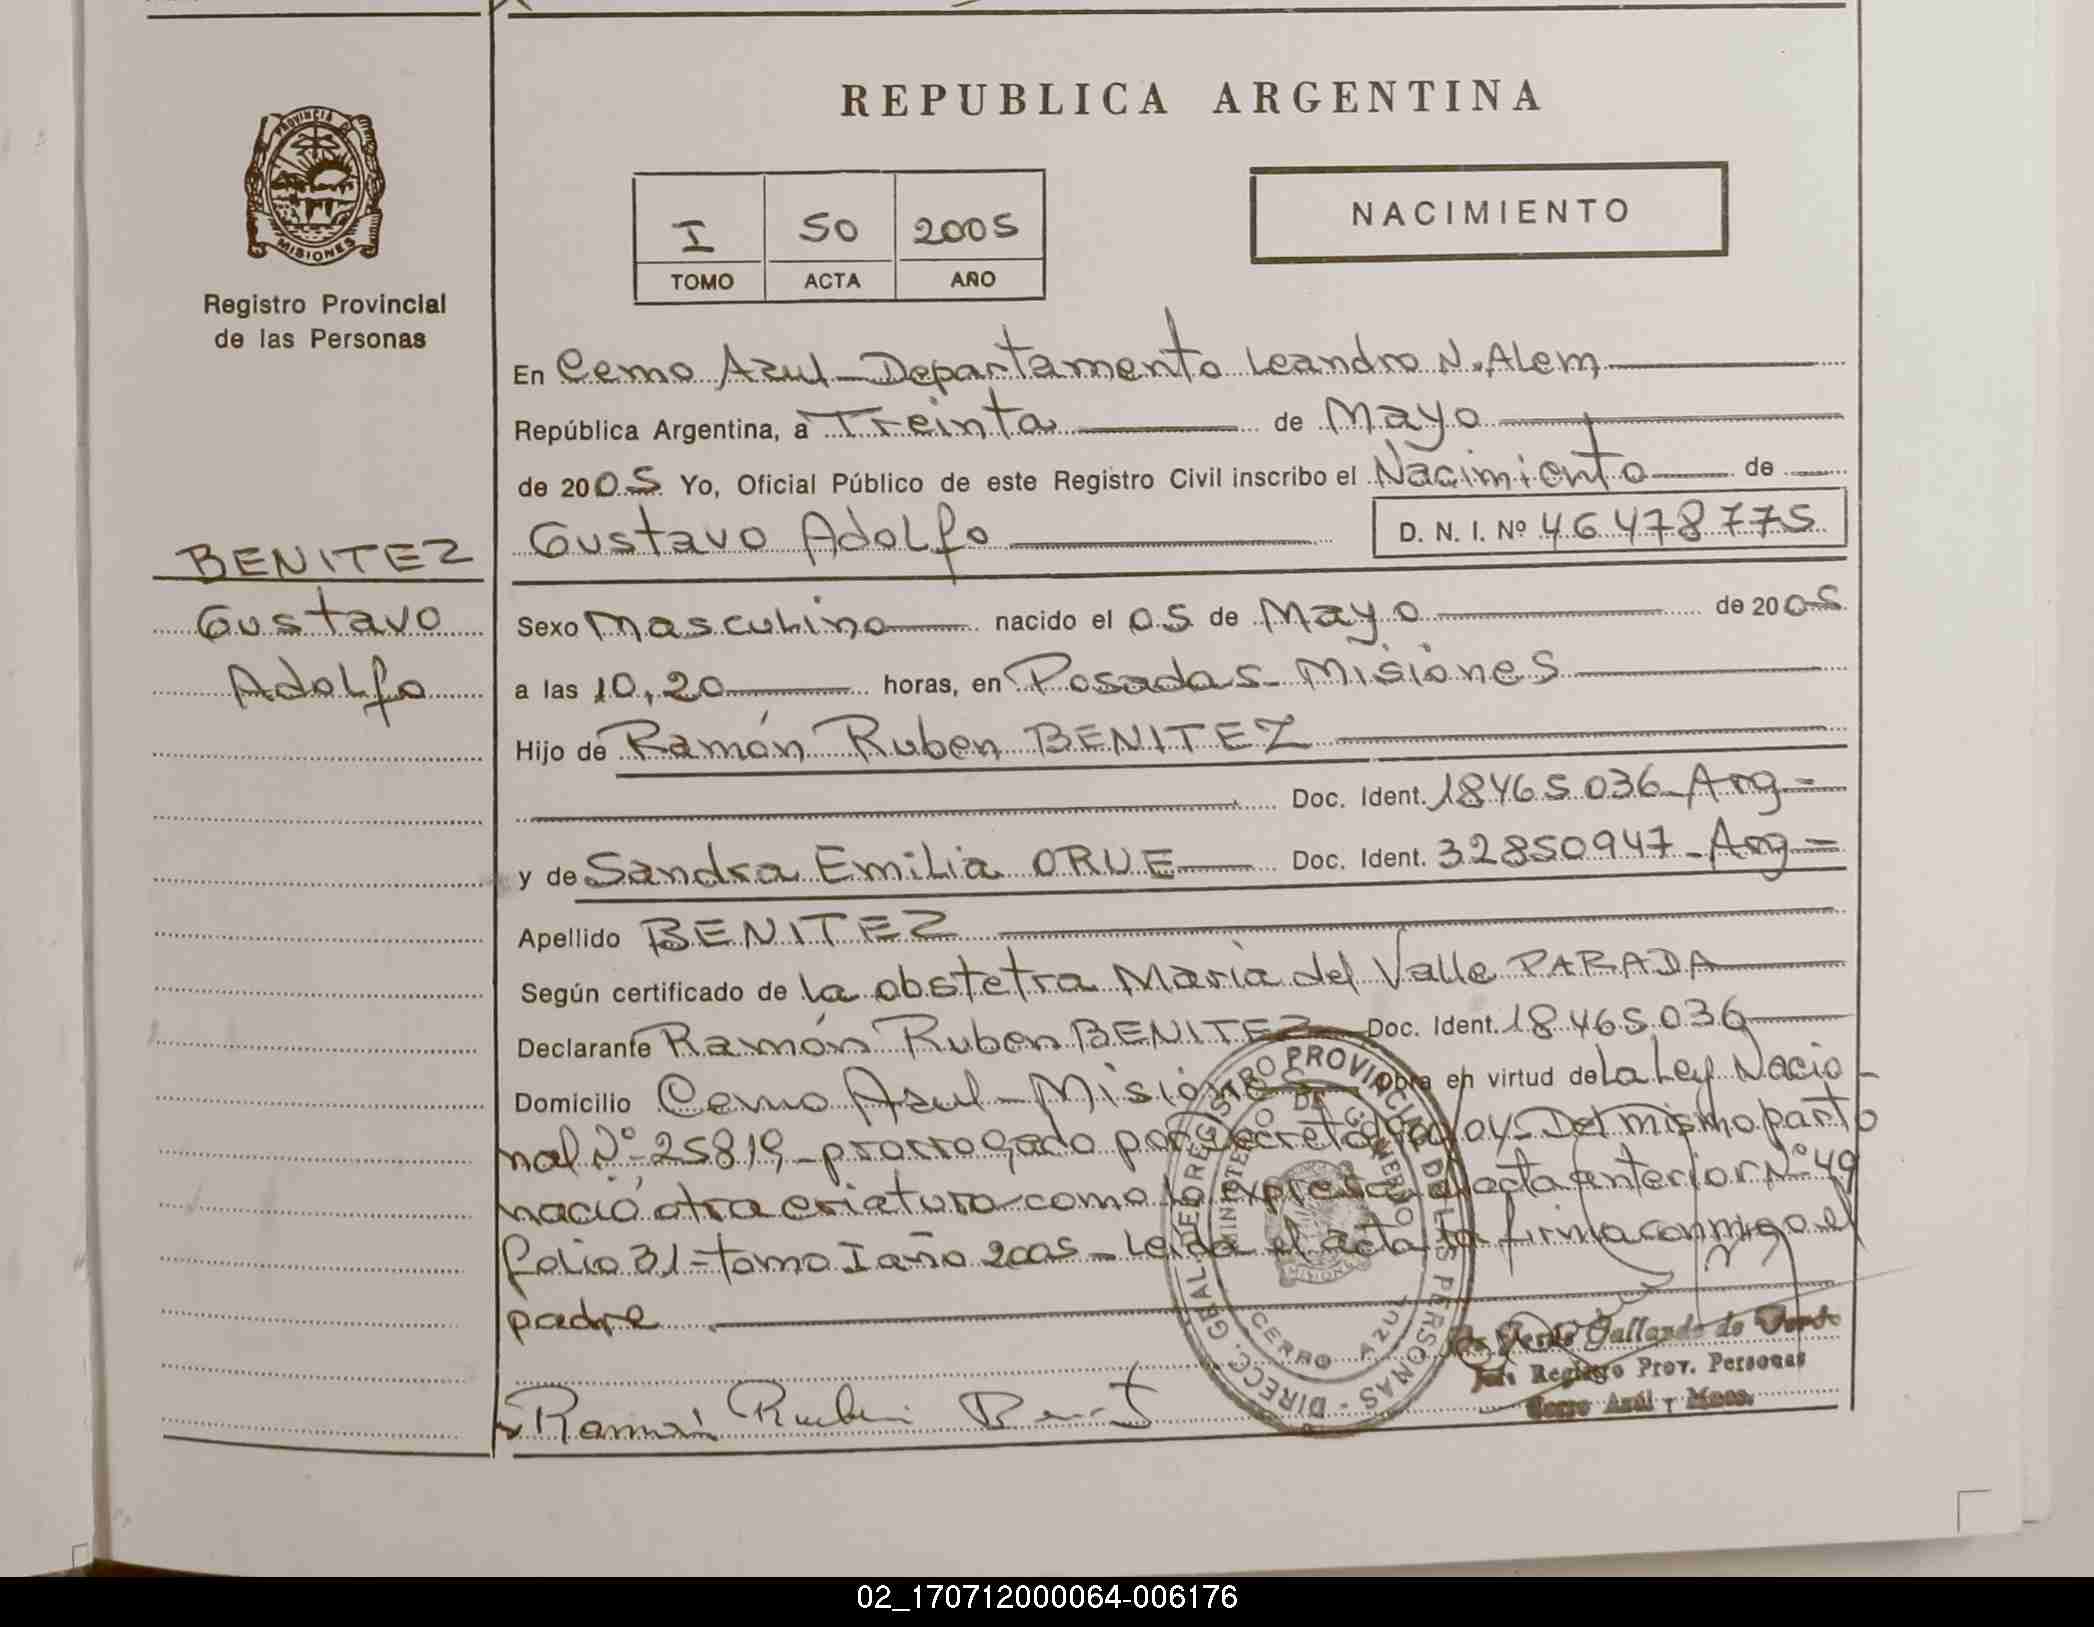 REPUBLICA ARGENTINA
PROVINCIA DE
MISIONES
Registro Provincial
de las Personas
I 50 2005
TOMO ACTA AÑO
NACIMIENTO
En Cerro Azul - Departamento Leandro N. Alem
República Argentina, a Treinta de Mayo
de 2005 Yo, Oficial Público de este Registro Civil inscribo el Nacimiento de
Gustavo Adolfo D. N. I. Nº 46.478.775
BENITEZ
Gustavo
Adolfo
Sexo Masculino nacido el 05 de Mayo de 2005
a las 10,20 horas, en Posadas - Misiones
Hijo de Ramón Ruben BENITEZ
Doc. Ident. 18465.036 - Arg =
y de Sandra Emilia ORUE Doc. Ident. 32850947 - Arg =
Apellido BENITEZ
Según certificado de la obstetra Maria del Valle PARADA
Declarante Ramón Ruben BENITEZ Doc. Ident. 18.465.036
Domicilio Cerro Azul - Misiones Obra en virtud de La Ley Nacio-
nal Nº 25819 - prorrogado por Decreto Del mismo parto
nació otra criatura como lo expresa el acta anterior Nº 49
folio 31 = tomo I año 2005 - Leida el acta la firma conmigo el
padre
DIRECC. GRAL. DE REGISTRO PROVINCIAL DE LAS PERSONAS
MINISTERIO DE GOBIERNO
MISIONES
CERRO AZUL
Ramón Ruben Benit
Gallardo de
Jefe Registro Prov. Personas
Cerro Azul - Mnes.
02_170712000064-006176